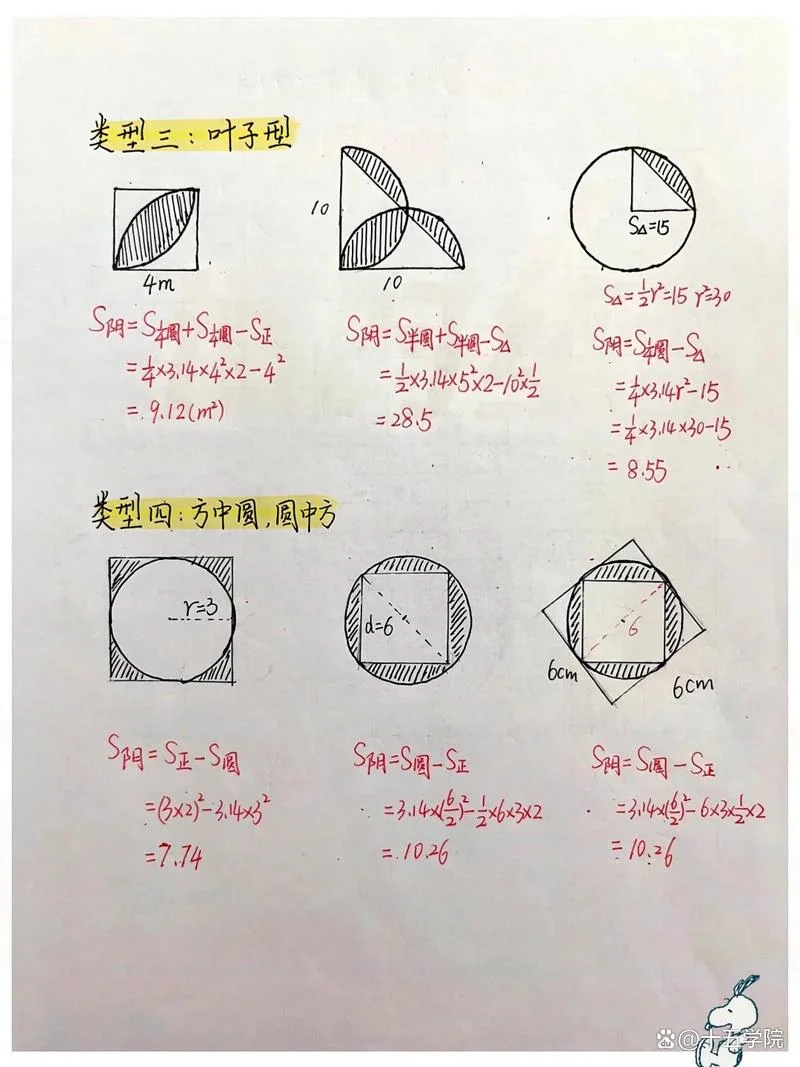 类型三：叶子型
4m
10
10
S△=15
S△=½r²=15 r²=30
S阴=S¼圆+S¼圆-S正
=¼×3.14×4²×2-4²
=9.12(m²)
S阴=S半圆+S半圆-S△
=½×3.14×5²×2-10²×½
=28.5
S阴=S¼圆-S△
=¼×3.14r²-15
=¼×3.14×30-15
=8.55
类型四：方中圆，圆中方
r=3
d=6
6
6cm
6cm
S阴=S正-S圆
=(3×2)²-3.14×3²
=7.74
S阴=S圆-S正
=3.14×(6/2)²-½×6×3×2
=10.26
S阴=S圆-S正
=3.14×(6/2)²-6×3×½×2
=10.26
@十五学院